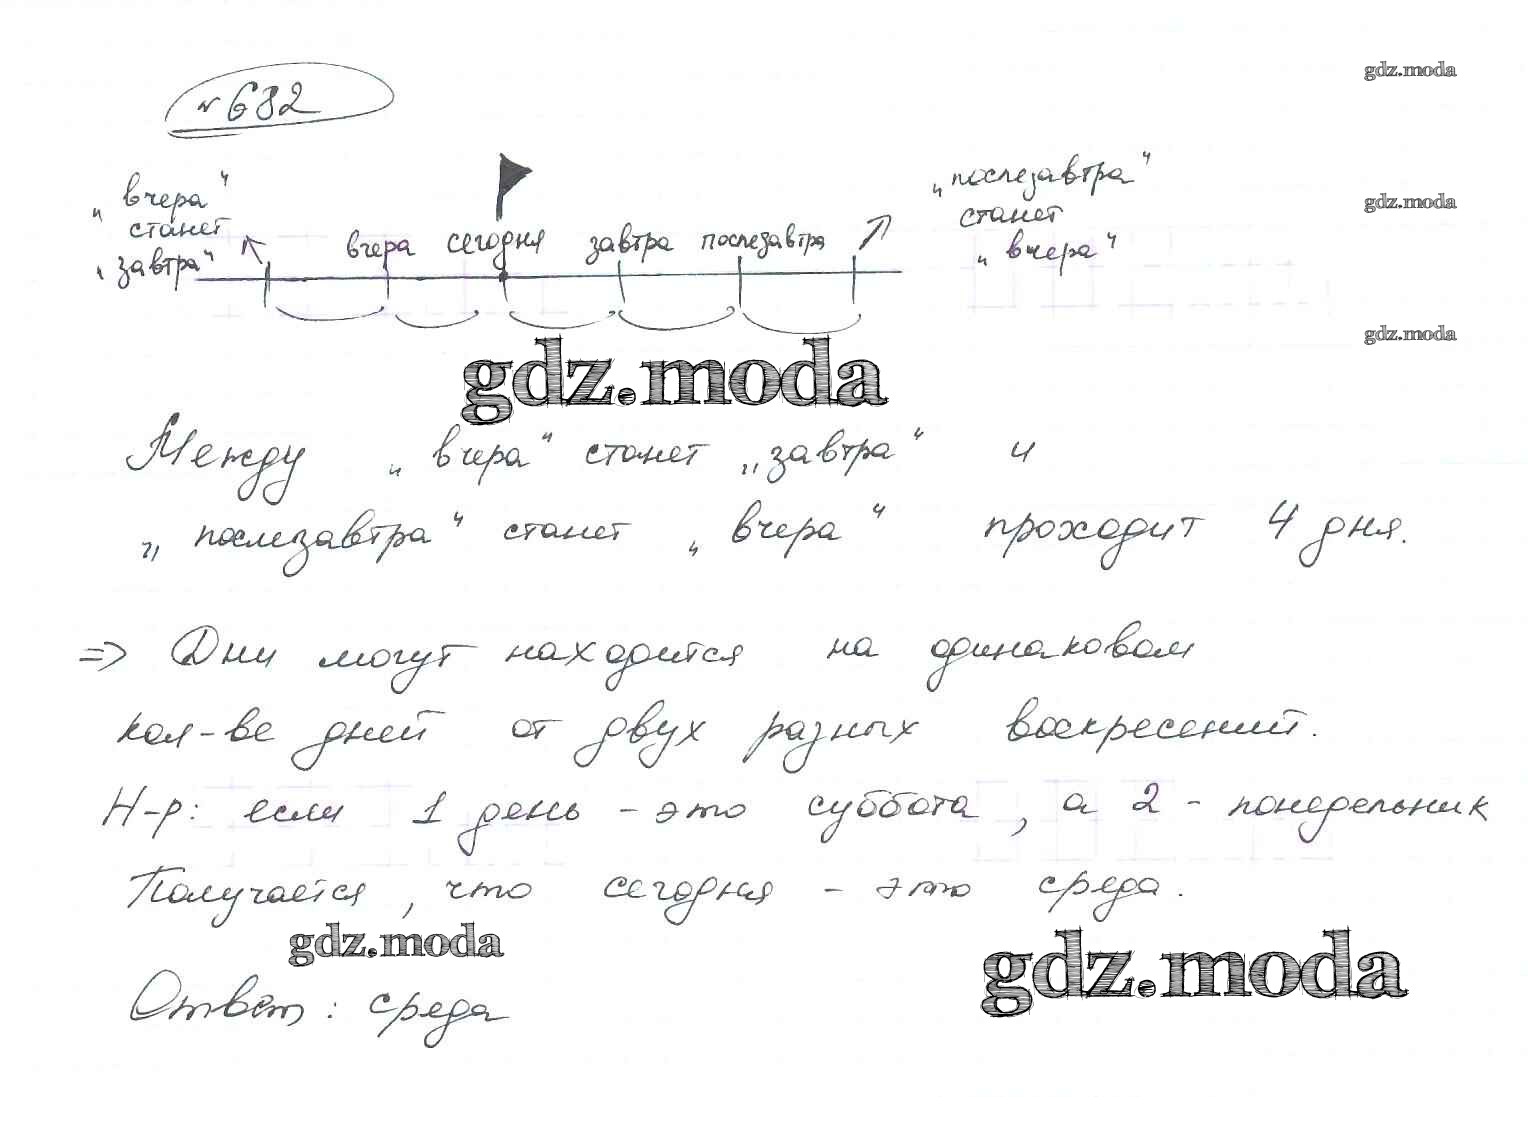 № 682
gdz.moda
„вчера“
станет
„завтра“
вчера сегодня завтра послезавтра
„послезавтра“
станет
„вчера“
gdz.moda
gdz.moda
gdz.moda
Между „вчера“ станет „завтра“ и
„послезавтра“ станет „вчера“ проходит 4 дня.
=> Дни могут находится на одинаковом
кол-ве дней от двух разных воскресений.
Н-р: если 1 день - это суббота, а 2 - понедельник
Получается, что сегодня - это среда.
gdz.moda
gdz.moda
Ответ: среда